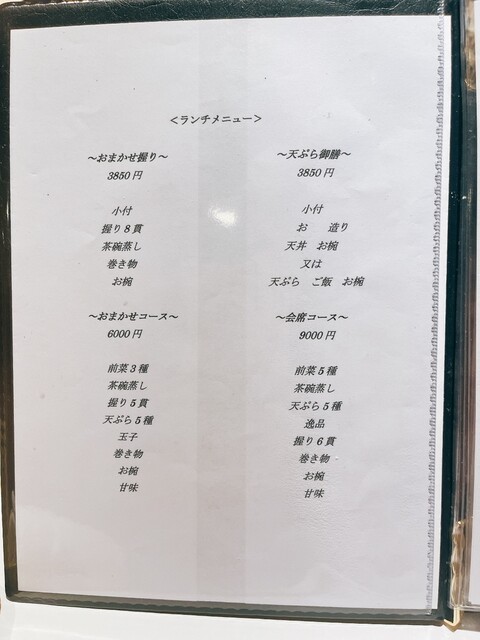 <ランチメニュー>
～おまかせ握り～
3850円
小付
握り8貫
茶碗蒸し
巻き物
お椀
～天ぷら御膳～
3850円
小付
お　造り
天丼　お椀
又は
天ぷら　ご飯　お椀
～おまかせコース～
6000円
前菜3種
茶碗蒸し
握り5貫
天ぷら5種
玉子
巻き物
お椀
甘味
～会席コース～
9000円
前菜5種
茶碗蒸し
天ぷら5種
逸品
握り6貫
巻き物
お椀
甘味